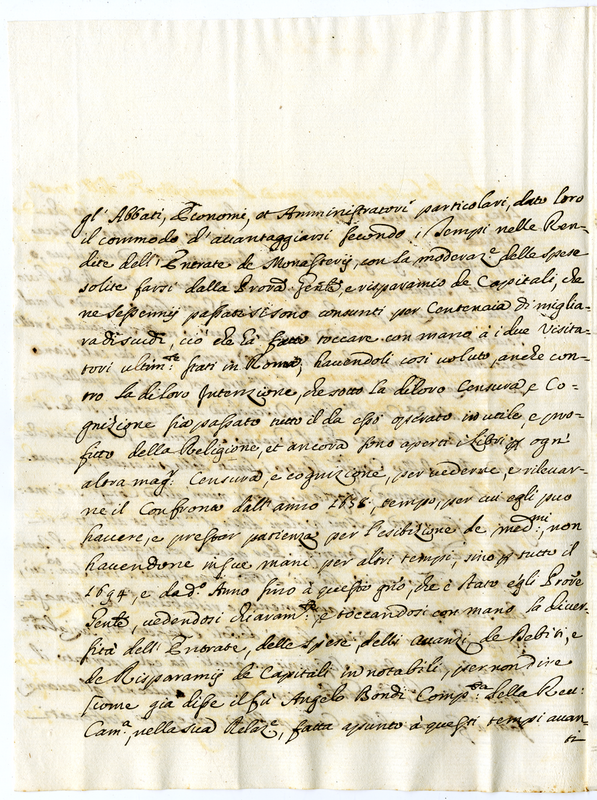 gl' Abbati, Economi, et Amministratori particolari, dato loro
il commodo d'auantaggiarsi secondo i Tempi nelle Ren-
dite dell' Entrate de Monasterij, con la moderaz.e delle spese
solite farsi dalla Procu.a Gen.le, e risparamio de Capitali, che
ne sessennij passati si sono consunti per Centenaia di miglia-
ra di scudi, ciò che hà fatto toccare con mano à i due Visita-
tori ultim.te stati in Roma, hauendoli così voluto, anche con-
tro la di loro Intenzione, che sotto la di loro Censura, e Co-
gnizione sia passato tutto il da esso operato in utile, e pro-
fitto della Religione, et ancora sono aperti i Libri p ogn'
altra mag.r Censura, e cognizione, per vederne, e rileuar-
ne il Confronto dall' anno tempo, per cui egli può
hauere, e prestar patienza per l'esibizione de med.mi, non
hauendone in sue mani per altri tempi, sino p tutto il
1694, e da d.o Anno fino à questo che è stato egli Proc.re
Gen.le, vedendosi chiaram.te, e toccandosi con mano la diuer-
sità dell' Entrate, delle Spese, delli auanzi, de Debiti, e
de Risparamij de Capitali innotabili, per non dire
siccome già disse il fù Angelo Bondi Comp.sta della Reu:
Cam.a, nella sua Relaz.e, fatta apunto à questi tempi auan-
ti